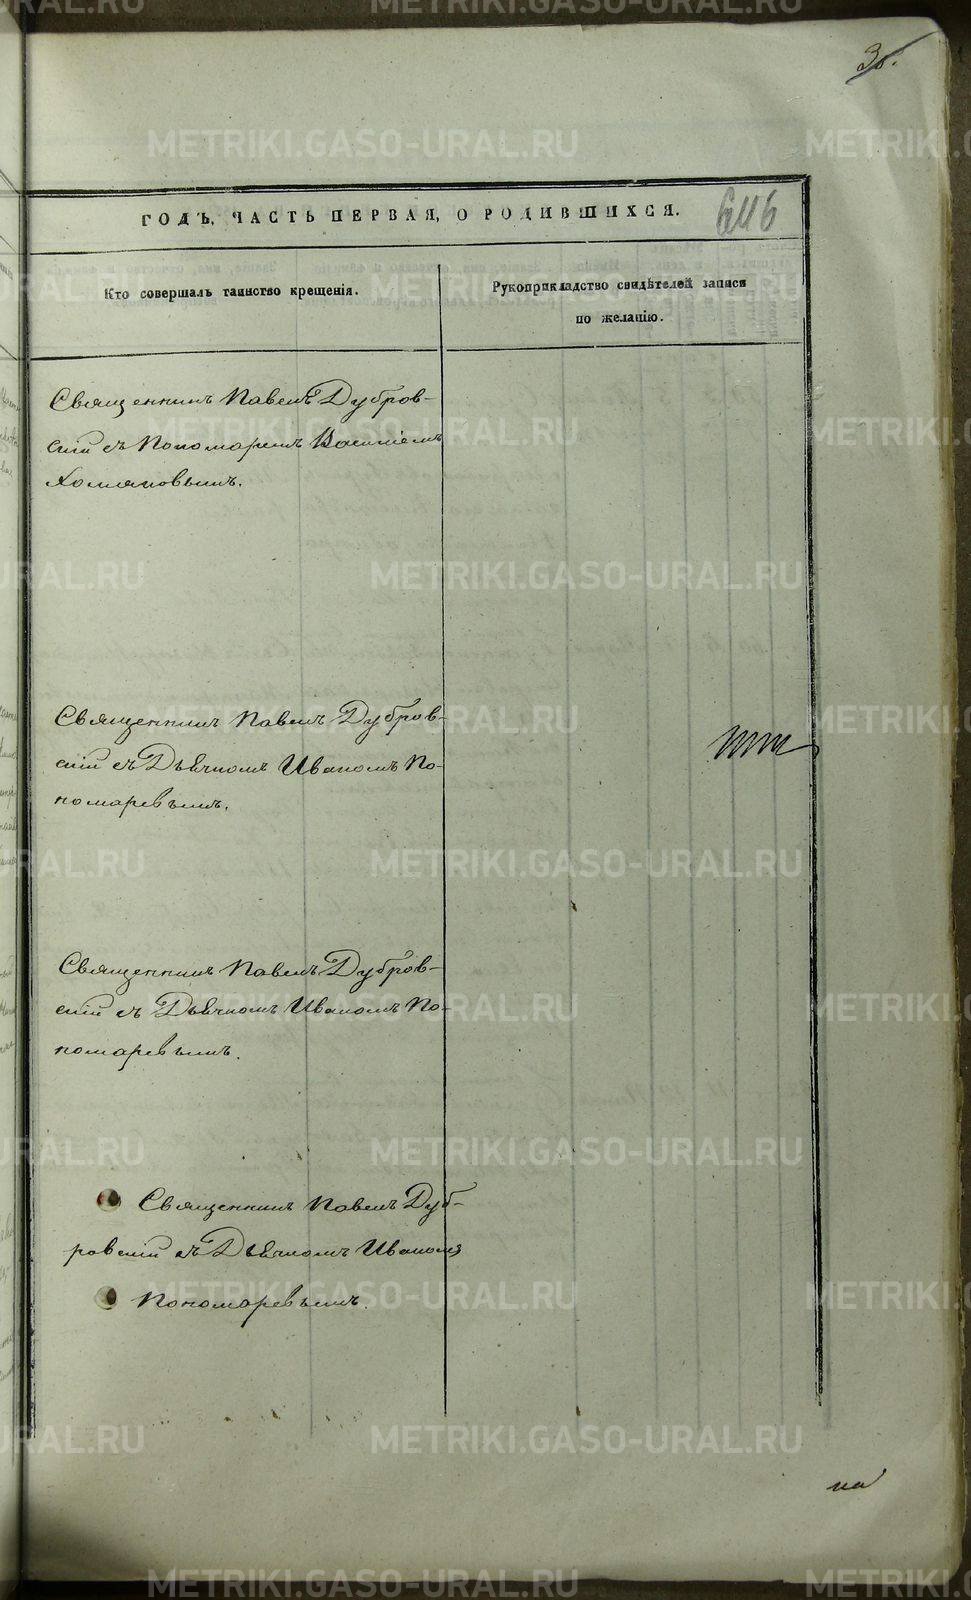 ГОДЪ, ЧАСТЬ ПЕРВАЯ, О РОДИВШИХСЯ.
Кто совершалъ таинство крещенія.
Рукоприкладство свидѣтелей записи
по желанію.
Священникъ Павелъ Дубров-
скій съ Пономаремъ Василіемъ
Хомяковымъ.
Священникъ Павелъ Дубров-
скій съ Дьячкомъ Иваномъ По-
номаревымъ.
Священникъ Павелъ Дубров-
скій съ Дьячкомъ Иваномъ По-
номаревымъ.
Священникъ Павелъ Дуб-
ровскій съ Дьячкомъ Иваномъ
Пономаревымъ.
METRIKI.GASO-URAL.RU